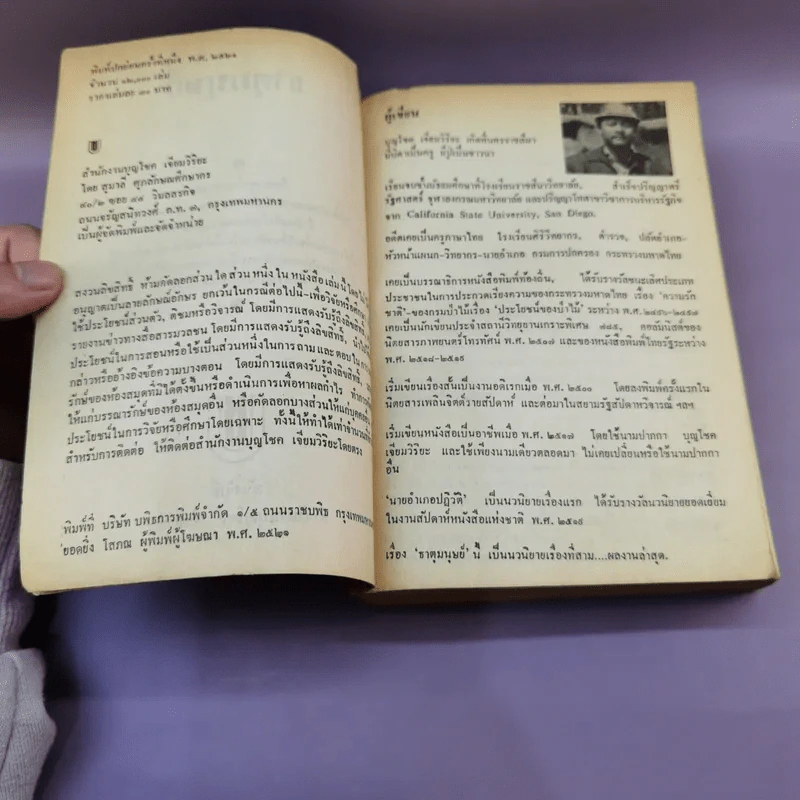 พิมพ์ปกอ่อนครั้งที่หนึ่ง พ.ศ. ๒๕๒๑
จำนวน ๑๒,๐๐๐ เล่ม
ราคาเล่มละ ๓๐ บาท
สำนักงานบุญโชค เจียมวิริยะ
โดย สุมาลี ศุภลักษณศึกษากร
๘๐/๒ ซอย ๙๘ วิมลสรกิจ
ถนนจรัญสนิทวงศ์ ก.ท. ๗, กรุงเทพมหานคร
เป็นผู้จัดพิมพ์และจัดจำหน่าย
สงวนลิขสิทธิ์ ห้ามคัดลอกส่วนใดส่วนหนึ่งในหนังสือเล่มนี้โดย
อนุญาตเป็นลายลักษณ์อักษร ยกเว้นในกรณีต่อไปนี้-เพื่อวิจัยหรือศึกษา
ใช้ประโยชน์ส่วนตัว, ติชมหรือวิจารณ์ โดยมีการแสดงรับรู้ถึงลิขสิทธิ์,
รายงานข่าวทางสื่อสารมวลชน โดยมีการแสดงรับรู้ถึงลิขสิทธิ์, นำไป
ประโยชน์ในการสอนหรือใช้เป็นส่วนหนึ่งในการถามและตอบใน
กล่าวหรืออ้างอิงข้อความบางตอน โดยมีการแสดงรับรู้ถึงลิขสิทธิ์,
รักษ์ของห้องสมุดที่มิได้ตั้งขึ้นหรือดำเนินการเพื่อหาผลกำไร
ให้แก่บรรณารักษ์ของห้องสมุดอื่น หรือคัดลอกบางส่วนให้แก่บุคคลอื่น
ประโยชน์ในการวิจัยหรือศึกษาโดยเฉพาะ ทั้งนี้ให้ทำได้เท่าจำนวน
สำหรับการติดต่อ ให้ติดต่อสำนักงานบุญโชค เจียมวิริยะโดยตรง
พิมพ์ที่ บริษัท บพิธการพิมพ์จำกัด ๑/๕ ถนนราชบพิธ กรุงเทพมหานคร
ยอดยิ่ง โสภณ ผู้พิมพ์ผู้โฆษณา พ.ศ. ๒๕๒๑
ผู้เขียน
บุญโชค เจียมวิริยะ เกิดที่นครราชสีมา
มีบิดาเป็นครู มีปู่เป็นชาวนา
เรียนจบชั้นมัธยมศึกษาที่โรงเรียนราชสีมาวิทยาลัย, สำเร็จปริญญาตรี
รัฐศาสตร์ จุฬาลงกรณมหาวิทยาลัย และปริญญาโทสาขาวิชาการบริหารธุรกิจ
จาก California State University, San Diego.
อดีตเคยเป็นครูภาษาไทย โรงเรียนศิริวิทยากร, ตำรวจ, ปลัดอำเภอ-
หัวหน้าแผนก-วิทยากร-นายอำเภอ กรมการปกครอง กระทรวงมหาดไทย
เคยเป็นบรรณาธิการหนังสือพิมพ์ท้องถิ่น, ได้รับรางวัลชนะเลิศประเภท
ประชาชนในการประกวดเรียงความของกระทรวงมหาดไทย เรื่อง 'ความรัก
ชาติ'-ของกรมป่าไม้เรื่อง 'ประโยชน์ของป่าไม้' ระหว่าง พ.ศ. ๒๔๙๖-๒๔๙๗
เคยเป็นนักเขียนประจำสถานีวิทยุยานเกราะพิเศษ ๗๘๕, คอลัมนิสต์ของ
นิตยสารภาพยนตร์โทรทัศน์ พ.ศ. ๒๕๑๗ และของหนังสือพิมพ์ไทยรัฐระหว่าง
พ.ศ. ๒๕๑๘-๒๕๑๙
เริ่มเขียนเรื่องสั้นเป็นงานอดิเรกเมื่อ พ.ศ. ๒๕๐๐ โดยลงพิมพ์ครั้งแรกใน
นิตยสารเพลินจิตต์รายสัปดาห์ และต่อมาในสยามรัฐสัปดาหวิจารณ์ ฯลฯ
เริ่มเขียนหนังสือเป็นอาชีพเมื่อ พ.ศ. ๒๕๑๗ โดยใช้นามปากกา บุญโชค
เจียมวิริยะ และใช้เพียงนามเดียวตลอดมา ไม่เคยเปลี่ยนหรือใช้นามปากกา
อื่น
'นายอำเภอปฏิวัติ' เป็นนวนิยายเรื่องแรก ได้รับรางวัลนวนิยายยอดเยี่ยม
ในงานสัปดาห์หนังสือแห่งชาติ พ.ศ. ๒๕๑๙
เรื่อง 'ธาตุมนุษย์' นี้ เป็นนวนิยายเรื่องที่สาม....ผลงานล่าสุด.